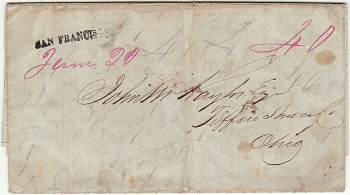 SAN FRANCIS
June 20
40
John W Kaylor Esq
Tiffin Seneca Co
Ohio